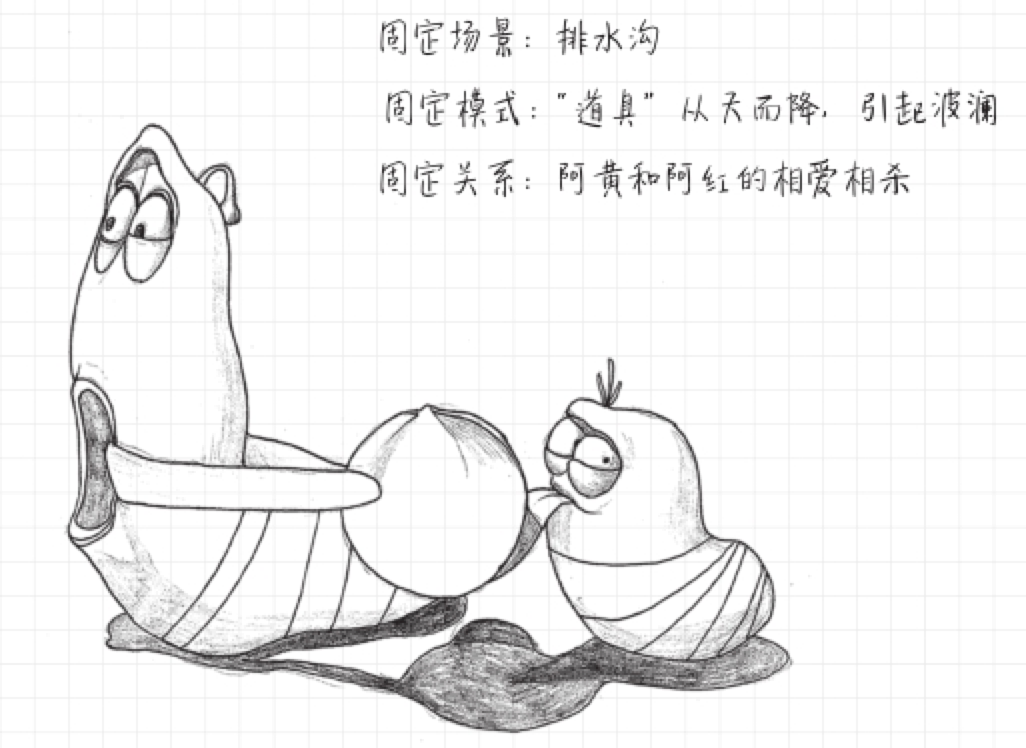 固定场景：排水沟
固定模式："道具"从天而降，引起波澜
固定关系：阿黄和阿红的相爱相杀